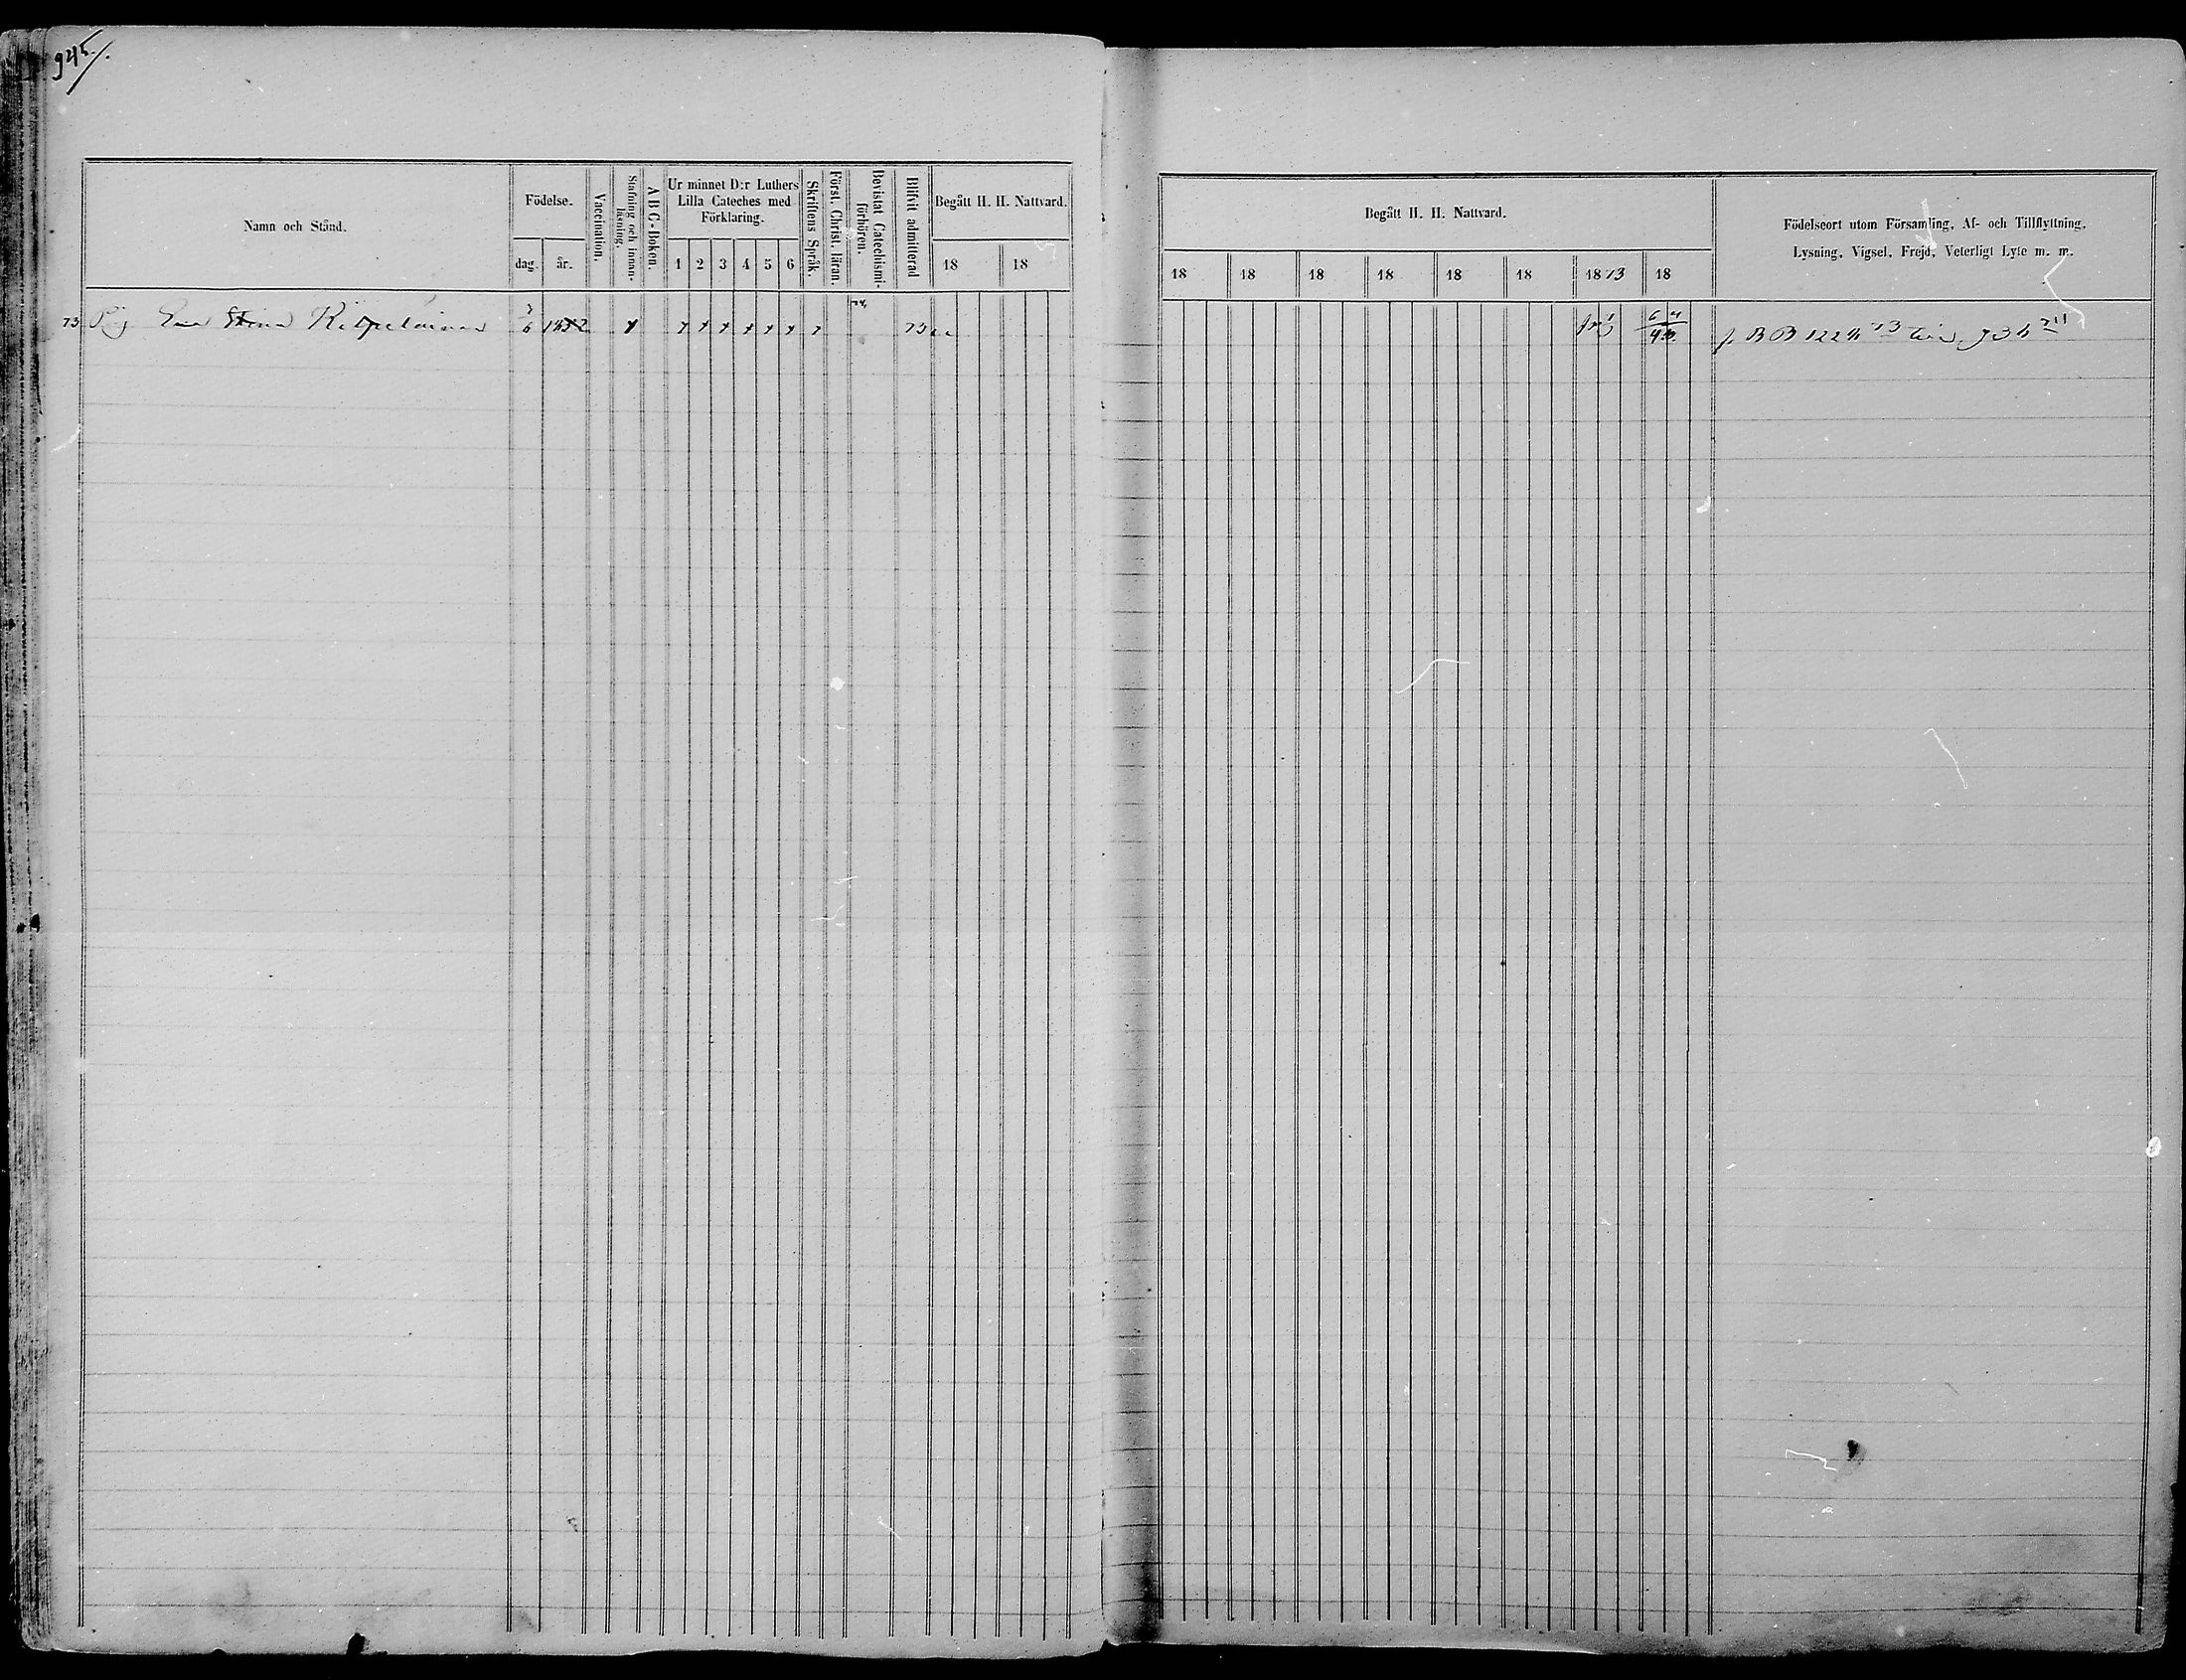 945/.
Namn och Stånd.
Födelse.
dag.
år.
Vaccination.
Stafning och innan-
läsning.
A B C-Boken.
Ur minnet D:r Luthers
Lilla Cateches med
Förklaring.
1 2 3 4 5 6
Skriftens Språk.
Först. Christ. läran.
Bevistat Catechismi-
förhören.
Blifvit admitterad
Begått H. H. Nattvard.
18 18
73 Pig. Eva Stina Kilpeläinen
x x x x x x x
73
Begått H. H. Nattvard.
18 18 18 18 18 18 1873 18
Födelseort utom Församling, Af- och Tillflyttning,
Lysning, Vigsel, Frejd, Veterligt Lyte m. m.